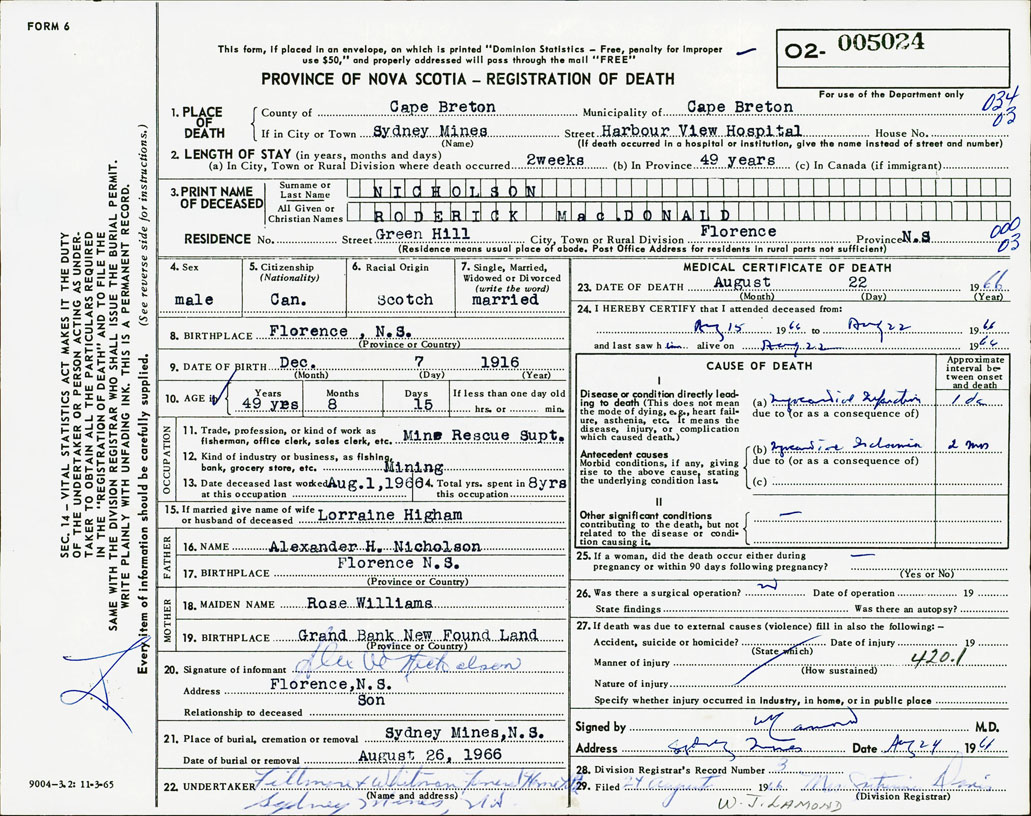 FORM 6
This form, if placed in an envelope, on which is printed "Dominion Statistics – Free, penalty for improper
use $50," and properly addressed will pass through the mail "FREE"
O2- 005024
PROVINCE OF NOVA SCOTIA – REGISTRATION OF DEATH
For use of the Department only
034
03
1. PLACE OF DEATH
County of Cape Breton Municipality of Cape Breton
If in City or Town Sydney Mines Street Harbour View Hospital House No.
(Name) (If death occurred in a hospital or institution, give the name instead of street and number)
2. LENGTH OF STAY (in years, months and days)
(a) In City, Town or Rural Division where death occurred 2weeks (b) In Province 49 years (c) In Canada (if immigrant)
3. PRINT NAME OF DECEASED
Surname or Last Name NICHOLSON
All Given or Christian Names RODERICK MacDONALD
RESIDENCE No. Street Green Hill City, Town or Rural Division Florence Province N.S
(Residence means usual place of abode. Post Office Address for residents in rural parts not sufficient)
000
03
4. Sex
male
5. Citizenship
(Nationality)
Can.
6. Racial Origin
Scotch
7. Single, Married,
Widowed or Divorced
(write the word)
married
8. BIRTHPLACE Florence , N.S.
(Province or Country)
9. DATE OF BIRTH Dec. 7 1916
(Month) (Day) (Year)
10. AGE
Years Months Days If less than one day old
49 yrs 8 15 hrs. or min.
OCCUPATION
11. Trade, profession, or kind of work as
fisherman, office clerk, sales clerk, etc. Mine Rescue Supt.
12. Kind of industry or business, as fishing,
bank, grocery store, etc. Mining
13. Date deceased last worked at this occupation Aug.1,1966
14. Total yrs. spent in this occupation 8yrs
15. If married give name of wife
or husband of deceased Lorraine Higham
FATHER
16. NAME Alexander H. Nicholson
17. BIRTHPLACE Florence N.S.
(Province or Country)
MOTHER
18. MAIDEN NAME Rose Williams
19. BIRTHPLACE Grand Bank New Found Land
(Province or Country)
20. Signature of informant Alex Nicholson
Address Florence,N.S.
Relationship to deceased Son
21. Place of burial, cremation or removal Sydney Mines,N.S.
Date of burial or removal August 26, 1966
22. UNDERTAKER Fillmore & Whitman Funeral Home
(Name and address)
Sydney Mines, N.S.
MEDICAL CERTIFICATE OF DEATH
23. DATE OF DEATH August 22 1966
(Month) (Day) (Year)
24. I HEREBY CERTIFY that I attended deceased from:
Aug 15 1966 to Aug 22 1966
and last saw him alive on Aug. 22 1966
CAUSE OF DEATH
Approximate
interval be-
tween onset
and death
I
Disease or condition directly lead-
ing to death (This does not mean
the mode of dying, e.g., heart fail-
ure, asthenia, etc. It means the
disease, injury, or complication
which caused death.)
(a) Myocardial Infarction 1 da
due to (or as a consequence of)
Antecedent causes
Morbid conditions, if any, giving
rise to the above cause, stating
the underlying condition last.
(b) Myocardial Ischaemia 2 mos
due to (or as a consequence of)
(c)
II
Other significant conditions
contributing to the death, but not
related to the disease or condi-
tion causing it.
25. If a woman, did the death occur either during
pregnancy or within 90 days following pregnancy?
(Yes or No)
26. Was there a surgical operation? Date of operation 19
State findings Was there an autopsy?
27. If death was due to external causes (violence) fill in also the following: –
Accident, suicide or homicide? Date of injury 19
(State which)
Manner of injury 420.1
(How sustained)
Nature of injury
Specify whether injury occurred in industry, in home, or in public place
Signed by W J Lamond M.D.
Address Sydney Mines Date Aug 24 1966
28. Division Registrar's Record Number 3
29. Filed 24 August 1966 Mrs Davis
(Division Registrar)
W.J. LAMOND
SEC. 14 – VITAL STATISTICS ACT MAKES IT THE DUTY
OF THE UNDERTAKER OR PERSON ACTING AS UNDER-
TAKER TO OBTAIN ALL THE PARTICULARS REQUIRED
IN THE "REGISTRATION OF DEATH" AND TO FILE THE
SAME WITH THE DIVISION REGISTRAR WHO SHALL ISSUE THE BURIAL PERMIT.
WRITE PLAINLY WITH UNFADING INK. THIS IS A PERMANENT RECORD.
Every item of information should be carefully supplied. (See reverse side for instructions.)
9004–3.2: 11-3-65